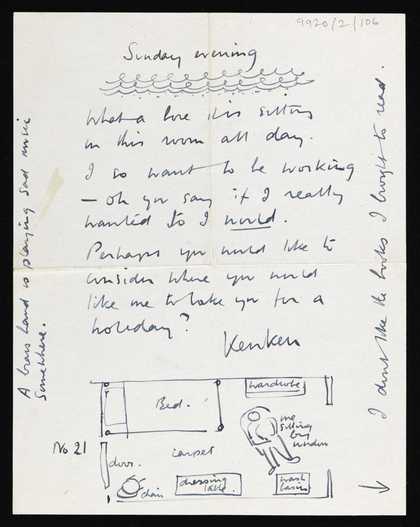 9920/2/106
Sunday evening
What a bore it is sitting
in this room all day.
I so want to be working
– oh you say if I really
wanted to I would.
Perhaps you would like to
consider where you would
like me to take you for a
holiday?
Kenken
A brass band is playing sad music
somewhere.
I dont like the books I brought to read.
wardrobe
Bed.
me
sitting
by
window
No 21
door.
carpet
chair
dressing
table.
wash
basin